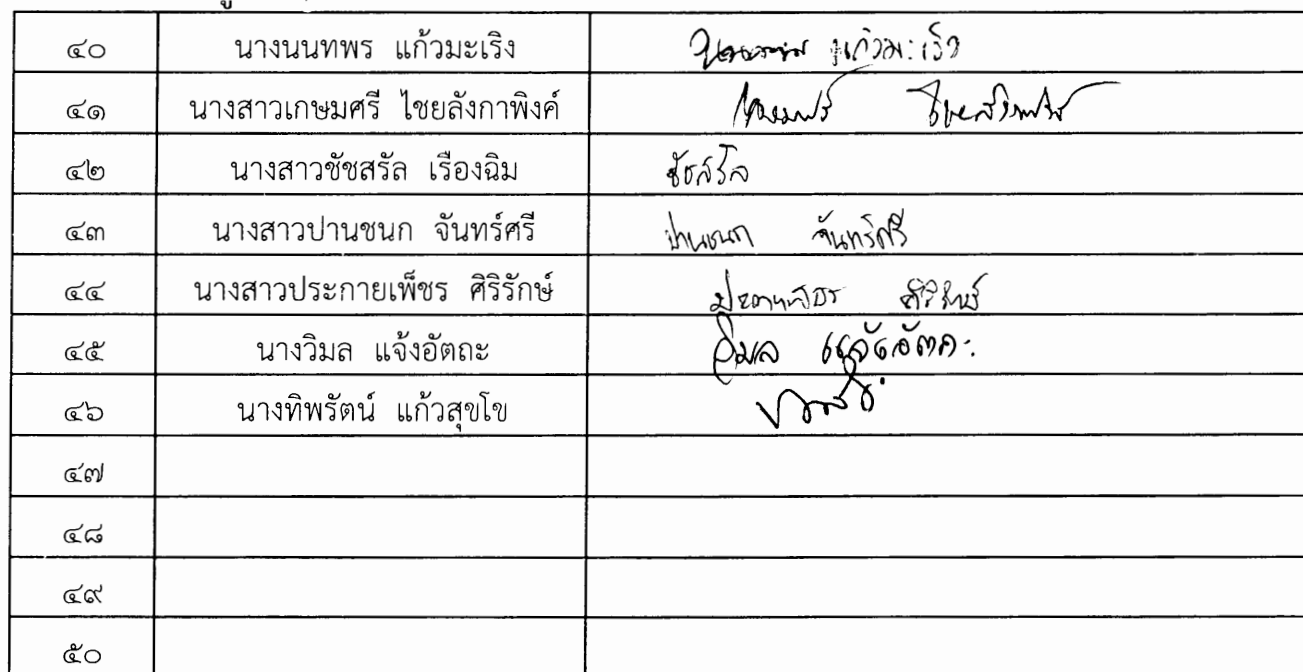 ๔๐ นางนนทพร แก้วมะเริง แก้วมะเริง
๔๑ นางสาวเกษมศรี ไชยลังกาพิงค์
๔๒ นางสาวชัชสรัล เรืองฉิม ชัชสรัล
๔๓ นางสาวปานชนก จันทร์ศรี ปานชนก จันทร์ศรี
๔๔ นางสาวประกายเพ็ชร ศิริรักษ์ ศิริรักษ์
๔๕ นางวิมล แจ้งอัตถะ วิมล แจ้งอัตถะ
๔๖ นางทิพรัตน์ แก้วสุขโข
๔๗
๔๘
๔๙
๕๐